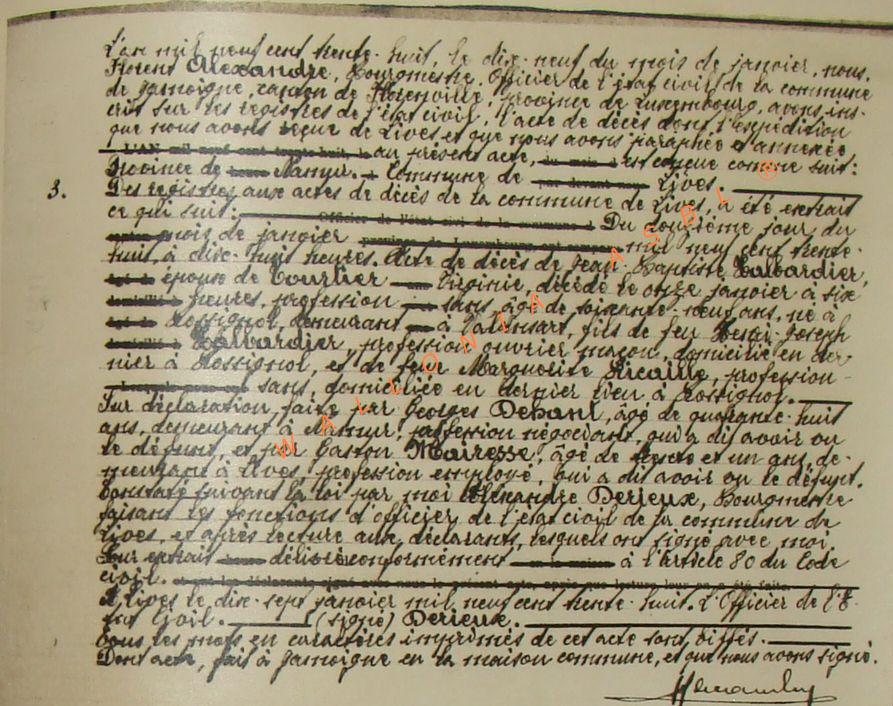 L'an mil neuf cent trente-huit, le dix-neuf du mois de janvier, nous,
Florent Alexandre, Bourgmestre, Officier de l'état civil de la commune
de Jamoigne, canton de Florenville, province de Luxembourg, avons ins-
crit sur les registres de l'état civil, l'acte de décès dont l'expédition
que nous avons reçue de Lives et que nous avons paraphée et annexée
L'AN mil neuf cent trente-huit, le au présent acte, du mois d est conçue comme suit:
Province de Namur. Commune de par devant nous Lives.
3. Des registres aux actes de décès de la commune de Lives, a été extrait
ce qui suit: Officier de l'état civil de la commune d Du douzième jour du
mois de janvier province de Luxembourg, ont comparu mil neuf cent trente-
huit, à dix-huit heures. Acte de décès de Jean-Baptiste Labardier,
âgé de époux de Tourlier Virginie, décédé le onze janvier à six
domicilié à heures, profession sans, âgé de soixante-neuf ans, né à
âgé de Rossignol, demeurant à , fils de feu Henri-Joseph
domicilié à Labardier, profession ouvrier maçon, domicilié en der-
nier à Rossignol, et de feue Marguerite , profession
sans, domiciliée en dernier lieu à Rossignol.
Sur déclaration, faite par Georges Debant, âgé de quarante-huit
ans, demeurant à Namur, profession négociant, qui a dit avoir vu
le défunt, et par Gaston Mairesse, âgé de trente et un ans, de-
meurant à Lives, profession employé, qui a dit avoir vu le défunt.
Constaté suivant la loi par moi Alexandre Derieux, Bourgmestre
faisant les fonctions d'officier de l'état civil de la commune de
Lives, et après lecture aux déclarants, lesquels ont signé avec moi.
Pour extrait délivré conformément en la maison à l'Article 80 du Code
civil. et ont les déclarants signé avec nous le présent acte, après que lecture leur en a été faite.
A Lives le dix-sept janvier mil neuf cent trente-huit. L'Officier de l'É-
tat Civil. (signé) Derieux.
Tous les mots en caractères imprimés de cet acte sont biffés.
Dont acte, fait à Jamoigne en la maison commune, et que nous avons signé.
WALLONIA ASBL ©